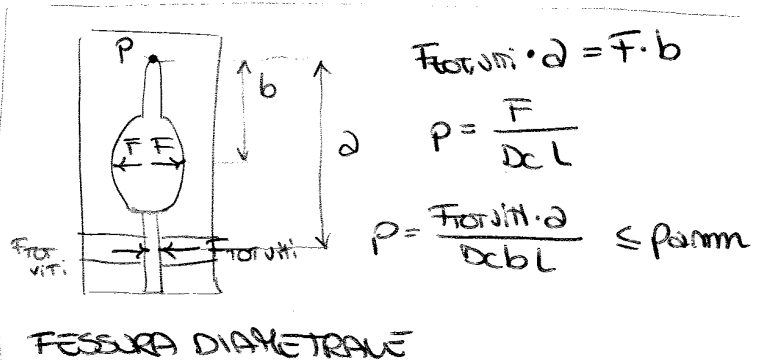 P
b
a
F F
F TOT VITI
F TOT VITI
F TOT,VITI · a = F · b
P = F / Dc L
P = F TOT VITI · a / Dc b L ≤ Pamm
FESSURA DIAMETRALE